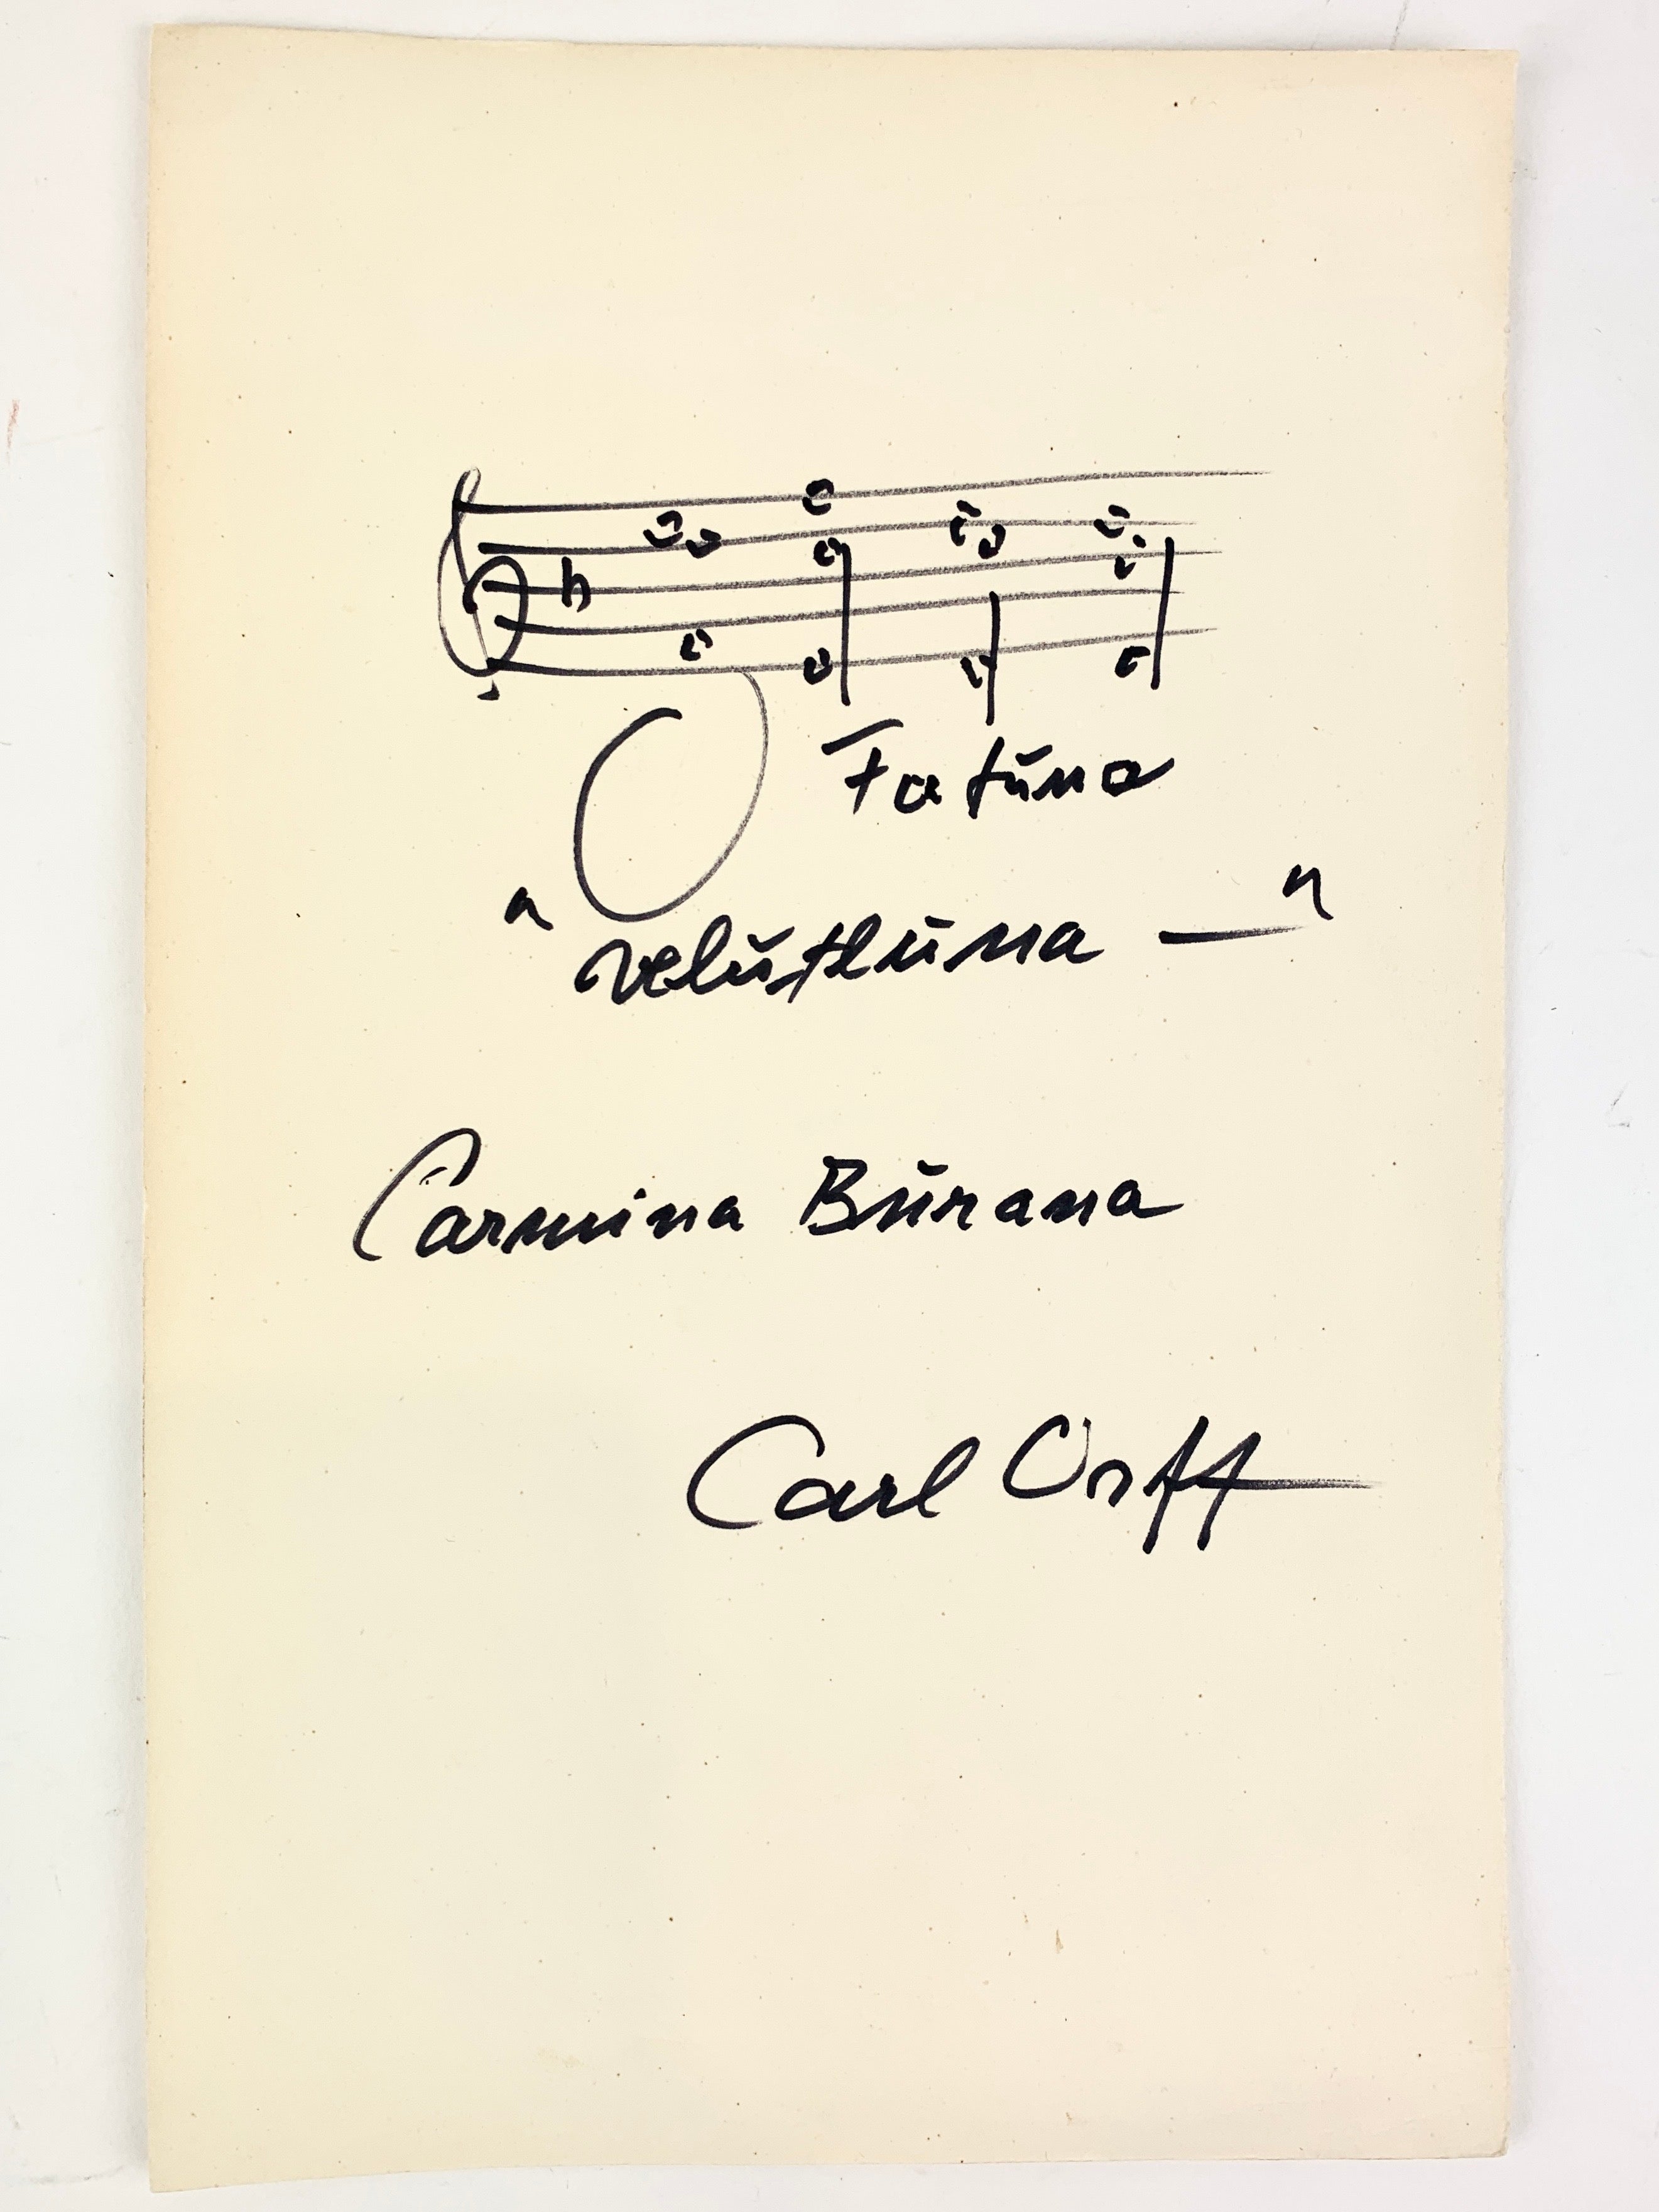 O Fortuna
"velut luna —"
Carmina Burana
Carl Orff